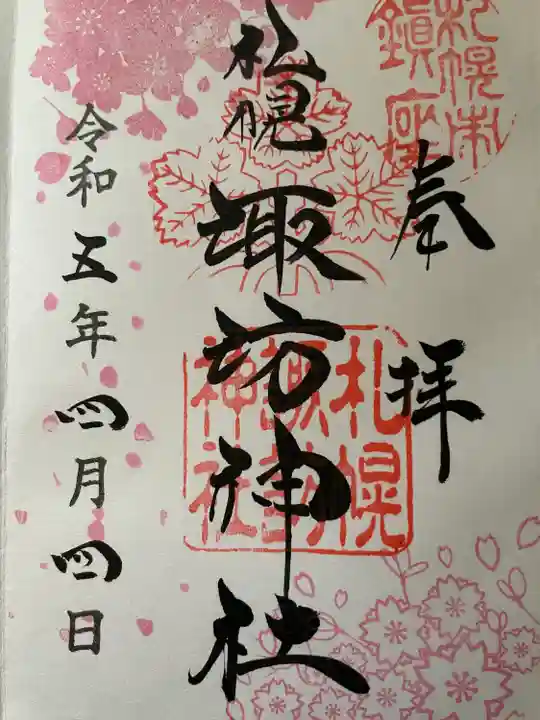 札幌市
鎮座
奉拝
札幌諏訪神社
札幌
諏訪
神社
令和五年四月四日